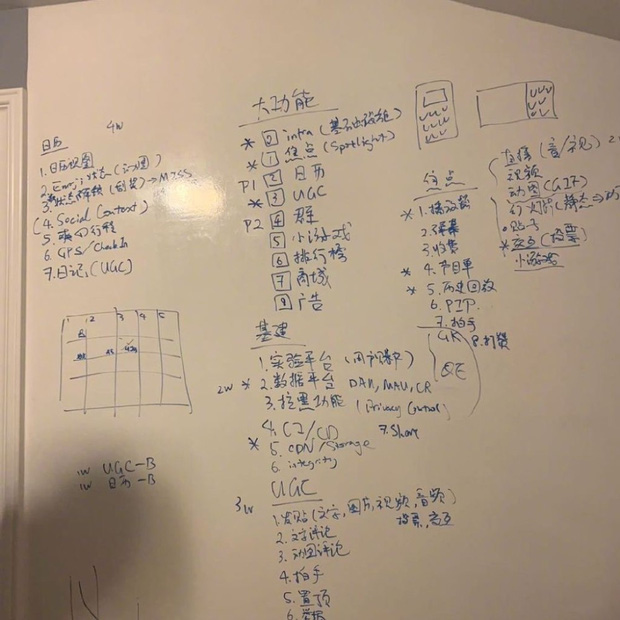 日历 4W
1. 日历视图
2. Emoji 状态 (动图)
3. → M2SS
4. Social Context)
5. 行程
6. GPS/Check In
7. 日记 (UGC)
1 2 3 4 5
1W UGC-B
1W 日历-B
大功能
* 0 infra (基础设施)
* 1 焦点 (Spotlight)
P1 2 日历
* 3 UGC
P2 4 群
5 小游戏
6 排行榜
7 商城
9 广告
基建
1. 实验平台
2W * 2. 数据平台 DAU, MAU, CR
3. 拉黑功能 (Privacy Control)
4. CI/CD 7. Share
* 5. CDN/Storage
6. integrity
UGC
3W 1. 发贴 (文字, 图片, 视频, 音频)
投票, 交互
2. 文字评论
3. 动图评论
4. 拍手
5. 置顶
6. 举报
焦点
* 1. 播放器
2. 弹幕
3. 收集
* 4. 节目单
* 5. 历史回放
6. PIP
7. 拍手
8. 打赏
直播 (音/视)
视频
动图 (GIF)
幻灯片
贴子
* 交互 (投票)
小游戏